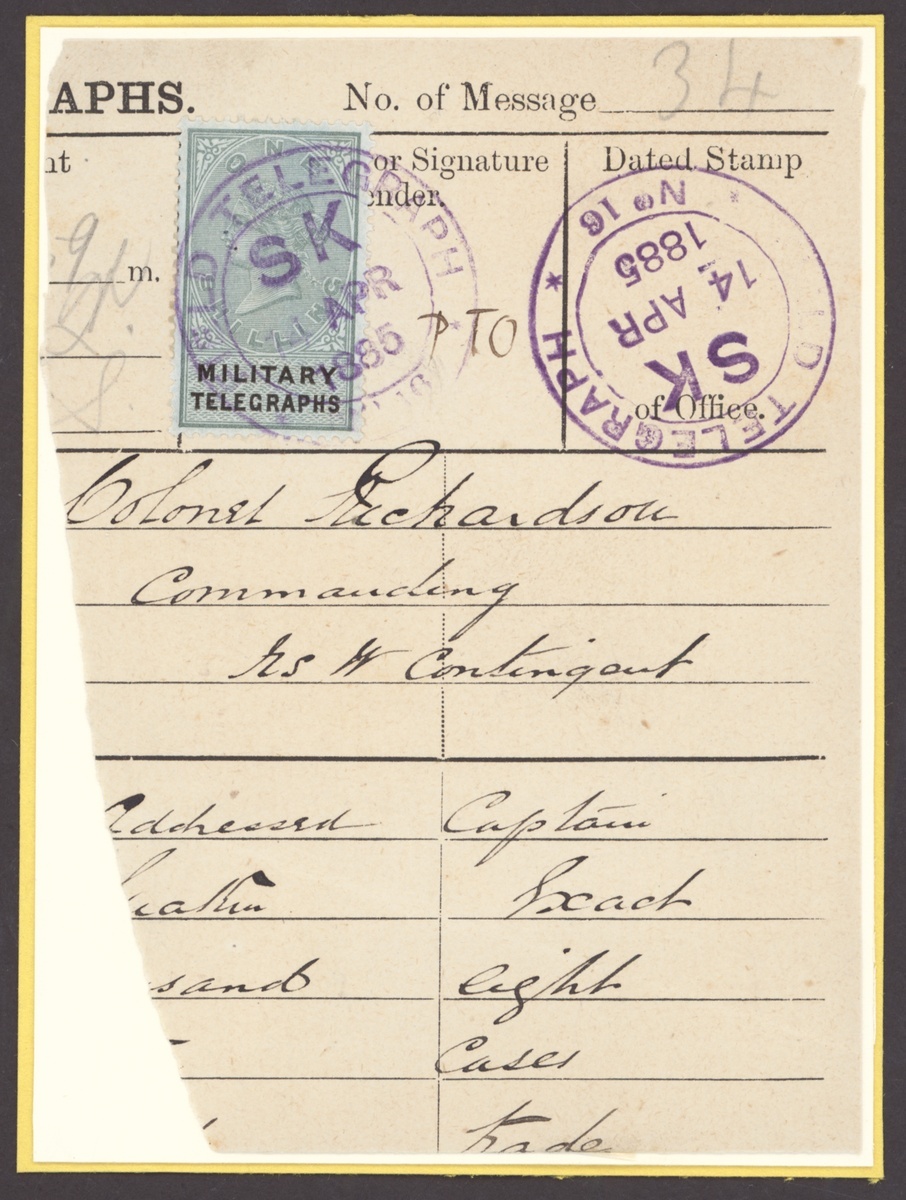 APHS. No. of Message 34
nt or Signature Dated Stamp
ender.
m.
ONE
SHILLING
MILITARY
TELEGRAPHS
TELEGRAPH
SK
APR
1885
PTO
TELEGRAPH No 16
SK
14 APR
1885
of Office.
Colonel Richardson
Commanding
Contingent
addressed Captain
Exact
sand eight
Cases
trade